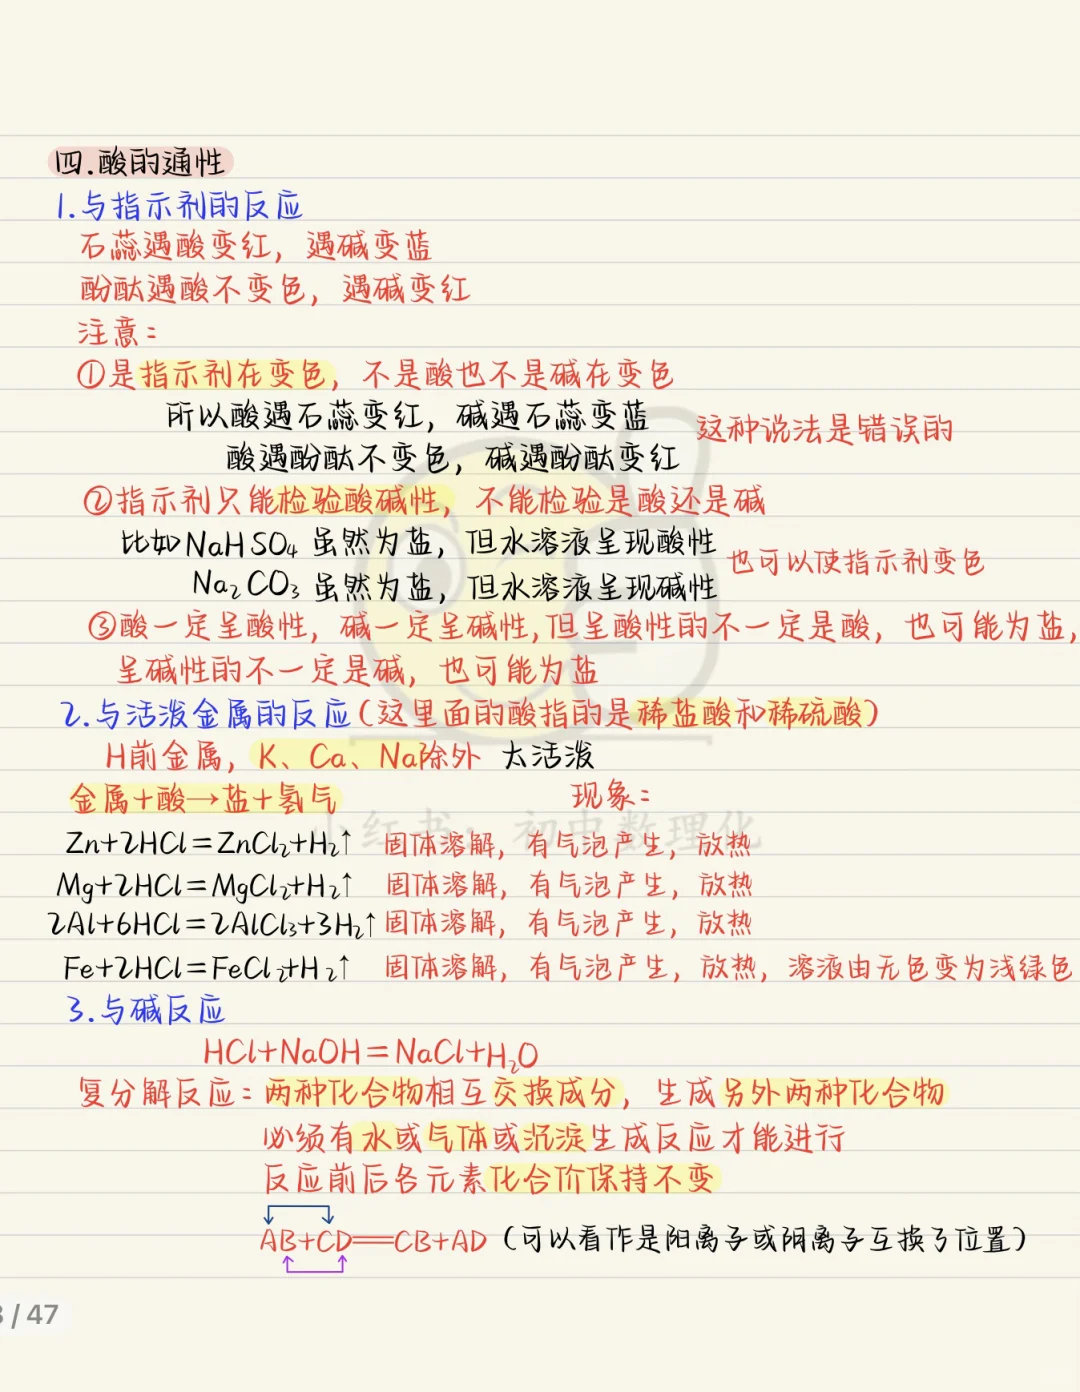 四.酸的通性
1.与指示剂的反应
石蕊遇酸变红，遇碱变蓝
酚酞遇酸不变色，遇碱变红
注意：
①是指示剂在变色，不是酸也不是碱在变色
所以酸遇石蕊变红，碱遇石蕊变蓝
这种说法是错误的
酸遇酚酞不变色，碱遇酚酞变红
②指示剂只能检验酸碱性，不能检验是酸还是碱
比如NaHSO₄虽然为盐，但水溶液呈现酸性
也可以使指示剂变色
Na₂CO₃虽然为盐，但水溶液呈现碱性
③酸一定呈酸性，碱一定呈碱性，但呈酸性的不一定是酸，也可能为盐，
呈碱性的不一定是碱，也可能为盐
2.与活泼金属的反应（这里面的酸指的是稀盐酸和稀硫酸）
H前金属，K、Ca、Na除外 太活泼
金属+酸→盐+氢气 现象：
小红书：初中数理化
Zn+2HCl=ZnCl₂+H₂↑ 固体溶解，有气泡产生，放热
Mg+2HCl=MgCl₂+H₂↑ 固体溶解，有气泡产生，放热
2Al+6HCl=2AlCl₃+3H₂↑ 固体溶解，有气泡产生，放热
Fe+2HCl=FeCl₂+H₂↑ 固体溶解，有气泡产生，放热，溶液由无色变为浅绿色
3.与碱反应
HCl+NaOH=NaCl+H₂O
复分解反应：两种化合物相互交换成分，生成另外两种化合物
必须有水或气体或沉淀生成反应才能进行
反应前后各元素化合价保持不变
AB+CD=CB+AD（可以看作是阳离子或阴离子互换了位置）
3/47